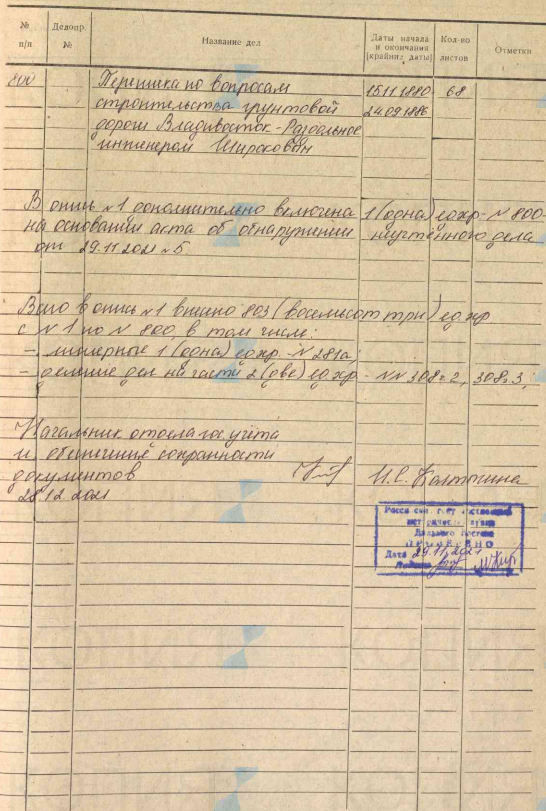 № п/п Делопр. № Название дел Даты начала и окончания [крайние даты] Кол-во листов Отметки
800 Переписка по вопросам 15.11.1880 68
строительства грунтовой 24.09.1886
дороги Владивосток-Раздольное
инженером Широковым
В опись №1 дополнительно включена 1 (одна) ед.хр. - N 800-
на основании акта об обнаружении неучтённого дела
от 29.11.2021 №5.
Всего в опись №1 внесено 803 (восемьсот три) ед.хр
с N 1 по N 800, в том числе:
- литерные 1 (одна) ед.хр. - N 281а;
- деление дел на части 2 (две) ед.хр - NN 308ч.2, 308ч.3;
Начальник отдела гос.учёта
и обеспечения сохранности
документов И.С.
28.12.2021
Российский государственный
исторический архив
Дальнего Востока
ПРОВЕРЕНО
Дата 29.11.2021
Подпись